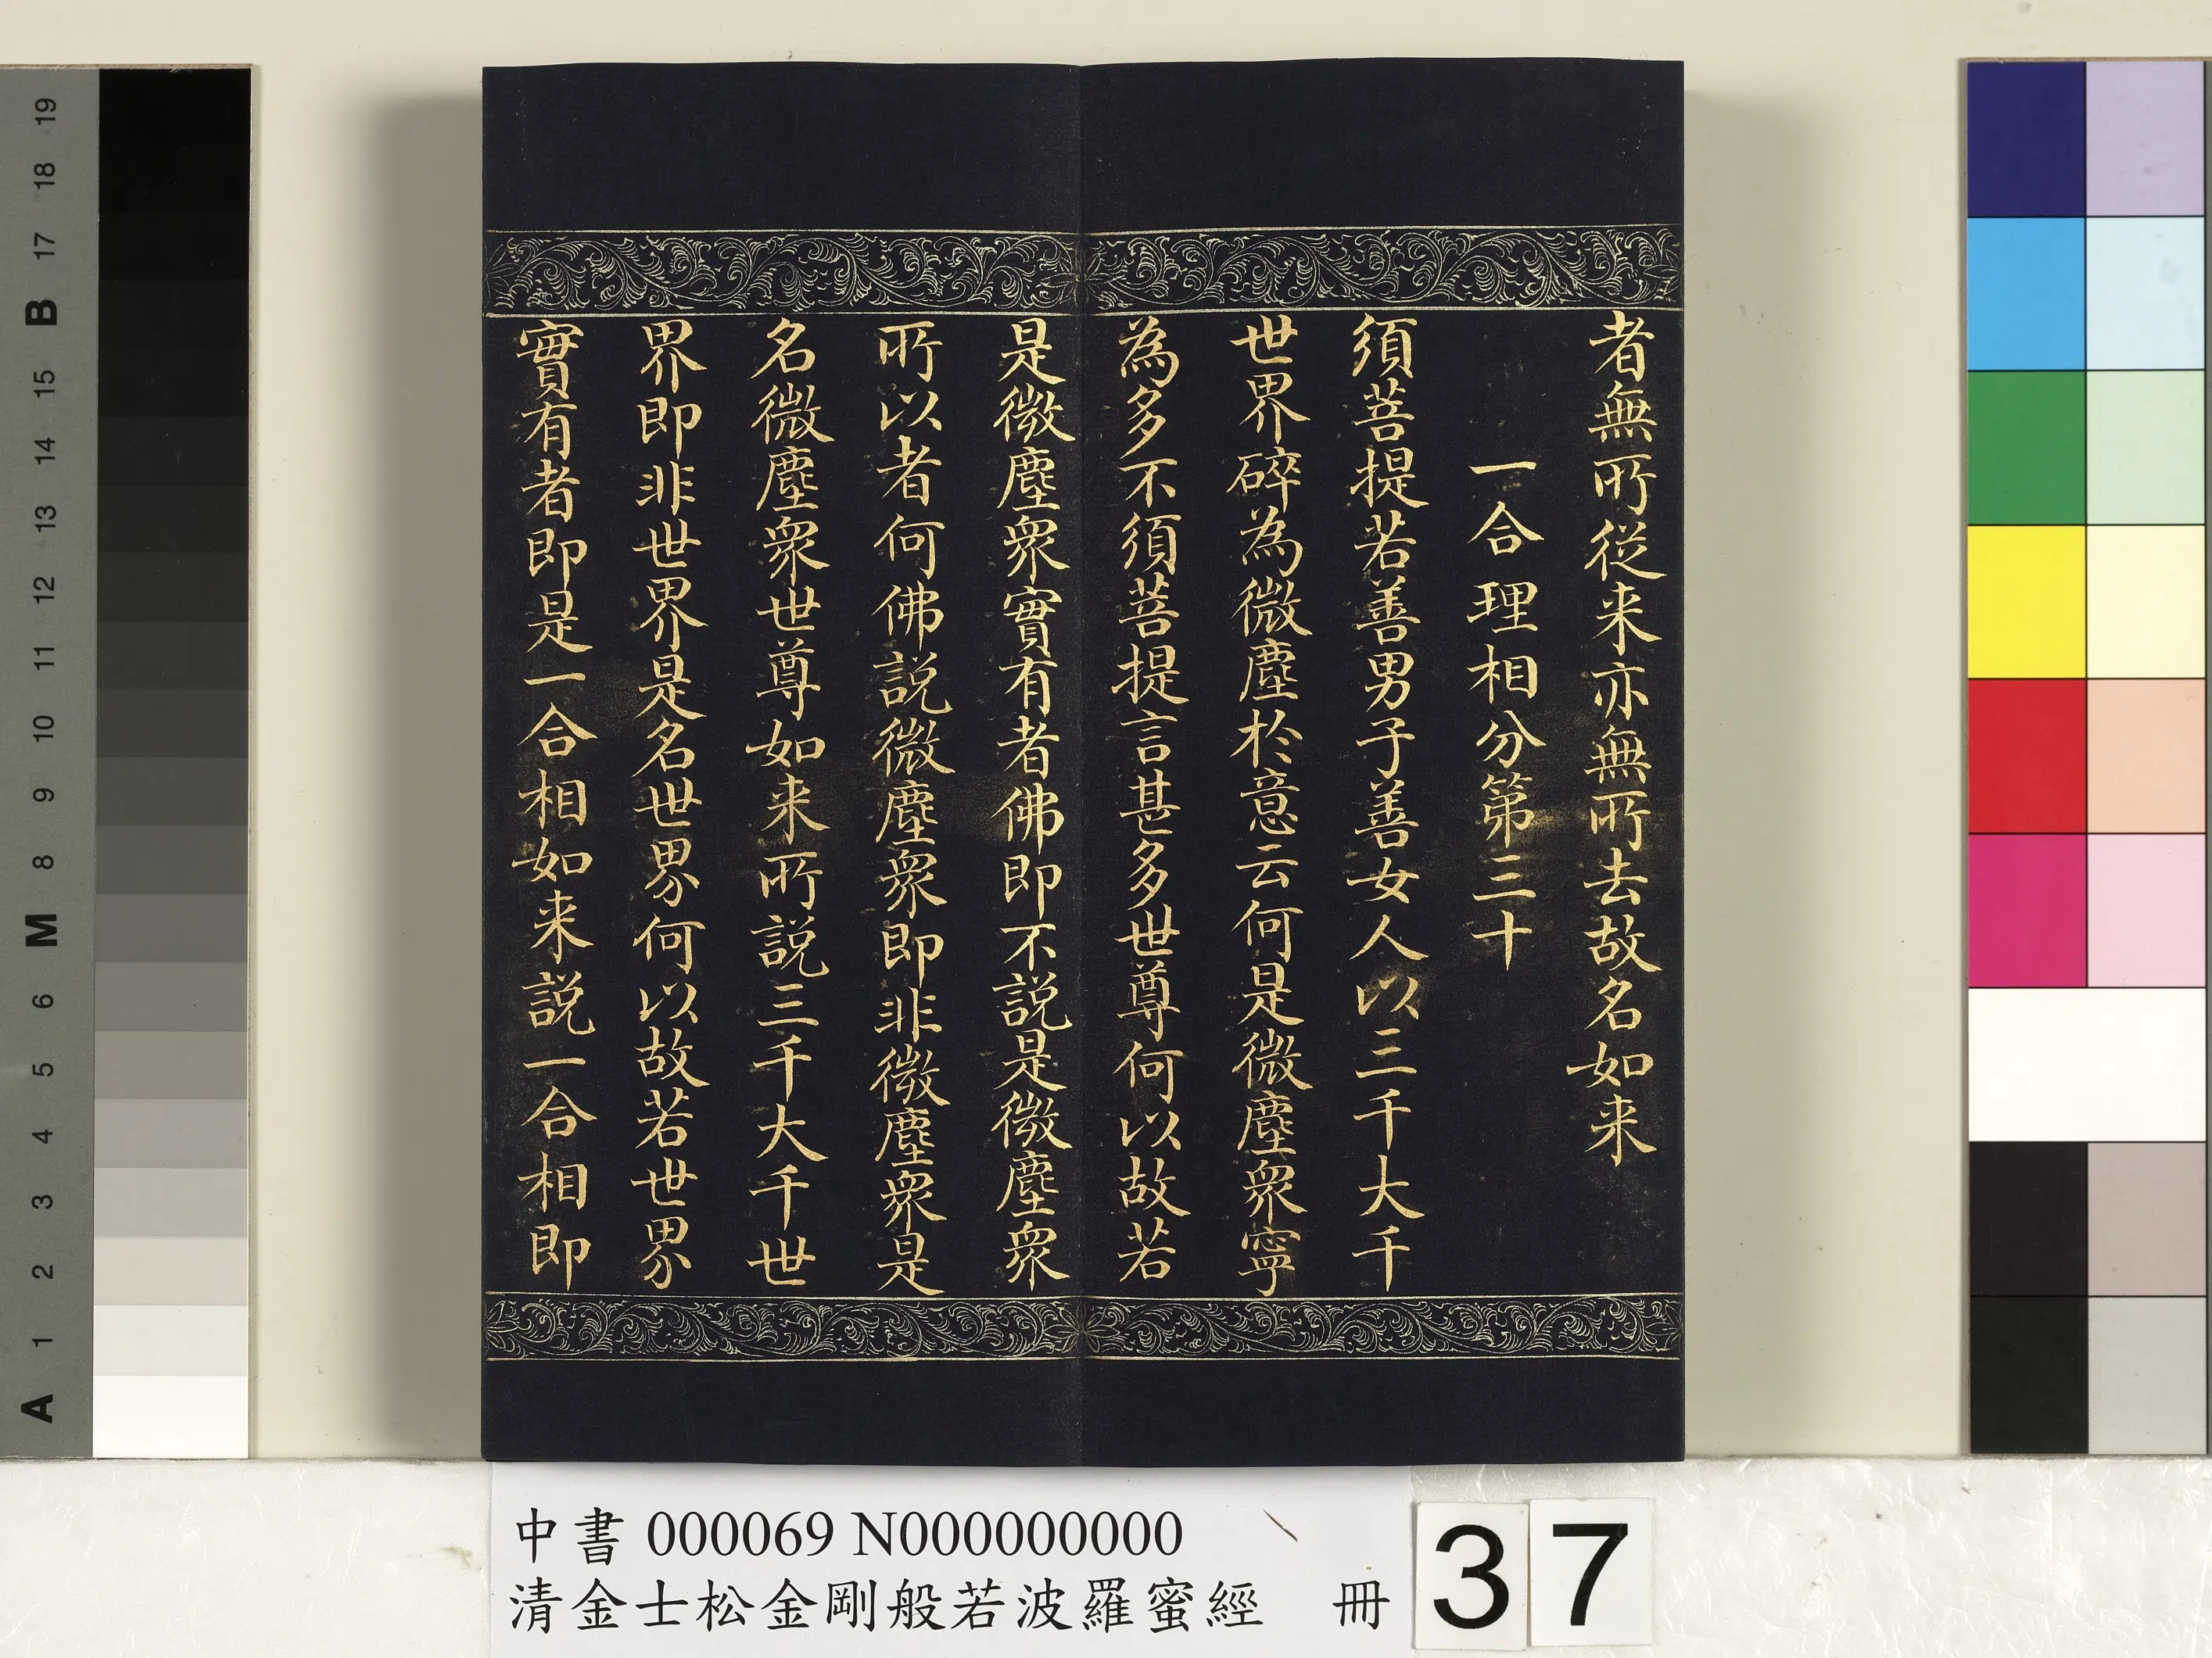 者無所從来亦無所去故名如来
一合理相分第三十
須菩提若善男子善女人以三千大千
世界碎為微塵於意云何是微塵衆寧
為多不須菩提言甚多世尊何以故若
是微塵衆實有者佛即不說是微塵衆
所以者何佛說微塵衆即非微塵衆是
名微塵衆世尊如来所說三千大千世
界即非世界是名世界何以故若世界
實有者即是一合相如来說一合相即
中書 000069 N000000000
清金士松金剛般若波羅蜜經 冊
37
19
18
17
B
15
14
13
12
11
10
9
8
M
6
5
4
3
2
1
A